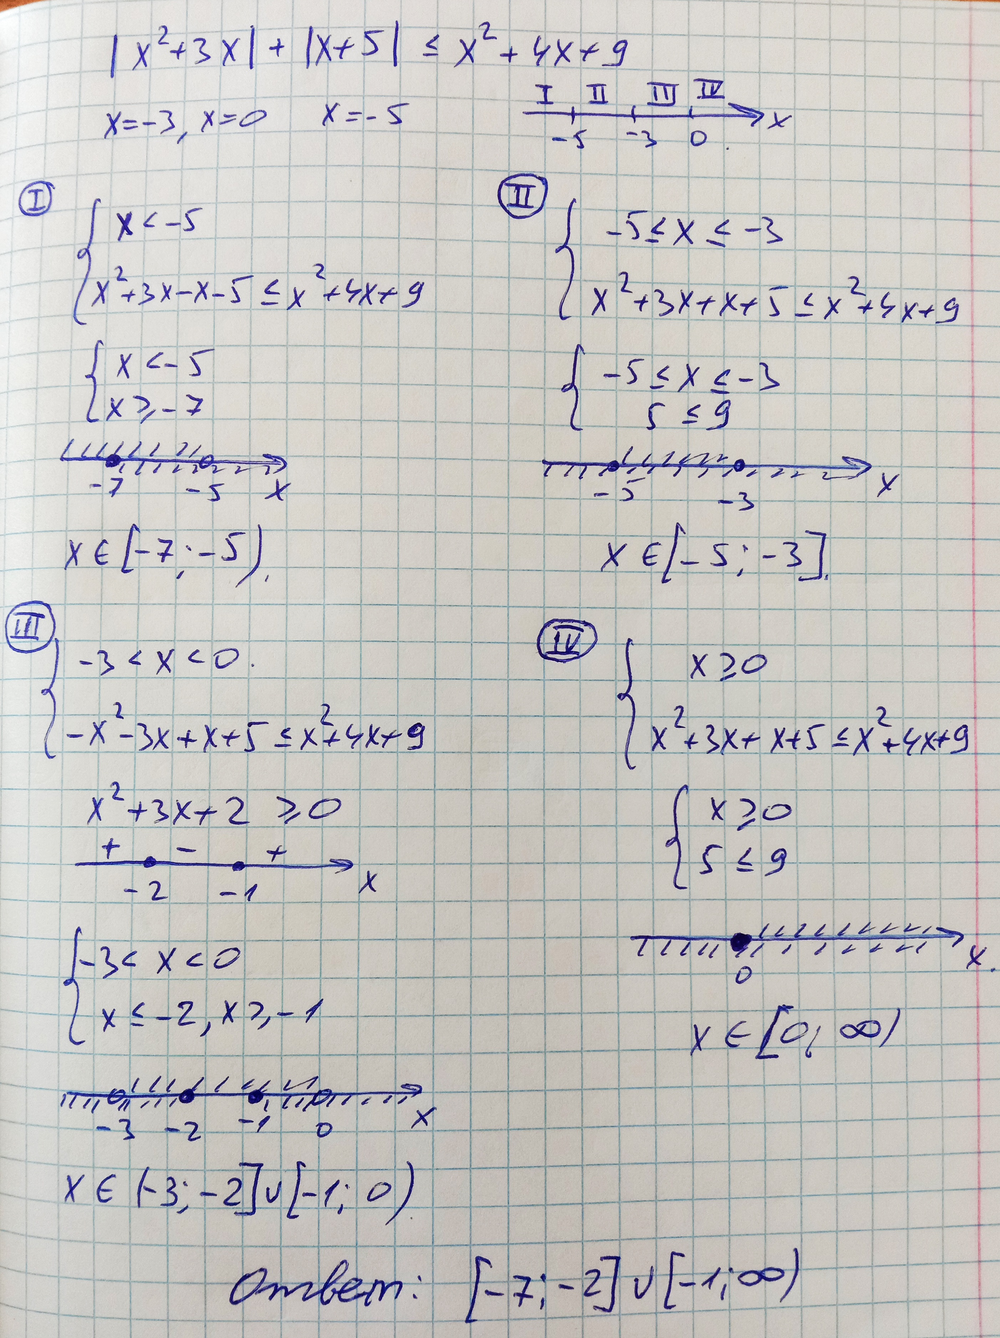 |x²+3x| + |x+5| ≤ x²+4x+9
x=-3, x=0 x=-5
I II III IV
-5 -3 0 x
I
x < -5
x²+3x-x-5 ≤ x²+4x+9
x < -5
x ≥ -7
-7 -5 x
x ∈ [-7; -5)
II
-5 ≤ x ≤ -3
x²+3x+x+5 ≤ x²+4x+9
-5 ≤ x ≤ -3
5 ≤ 9
-5 -3 x
x ∈ [-5; -3]
III
-3 < x < 0
-x²-3x+x+5 ≤ x²+4x+9
x²+3x+2 ≥ 0
+ - +
-2 -1 x
-3 < x < 0
x ≤ -2, x ≥ -1
-3 -2 -1 0 x
x ∈ (-3; -2] ∪ [-1; 0)
IV
x ≥ 0
x²+3x+x+5 ≤ x²+4x+9
x ≥ 0
5 ≤ 9
0 x
x ∈ [0; ∞)
Ответ: [-7; -2] ∪ [-1; ∞)